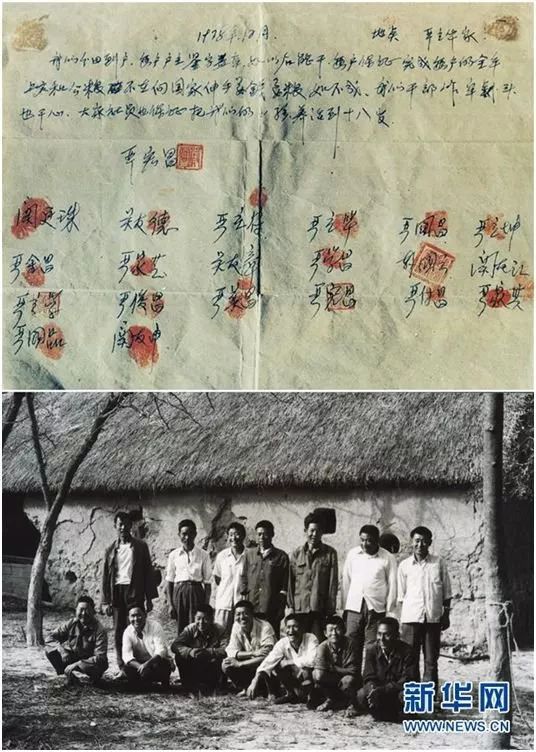 1978年12月. 地点 严立华家.
我们分田到户. 每户户主签字盖章. 如以后能干. 每户保证完成每户的全年
上交和公粮 不在向国家伸手要钱要粮. 如不成. 我们干部作牢杀头
也干心. 大家社员也保证把我们的小孩养活到十八岁
严宏昌
关廷珠 关友德 严立符 严立华 严国昌 严立坤
严金昌 严家芝 关友章 严学昌 韩国云 关友江
严立学 严俊昌 严美昌 严宏昌 严付昌 严家其
严国品 关友申
新华网
WWW.NEWS.CN